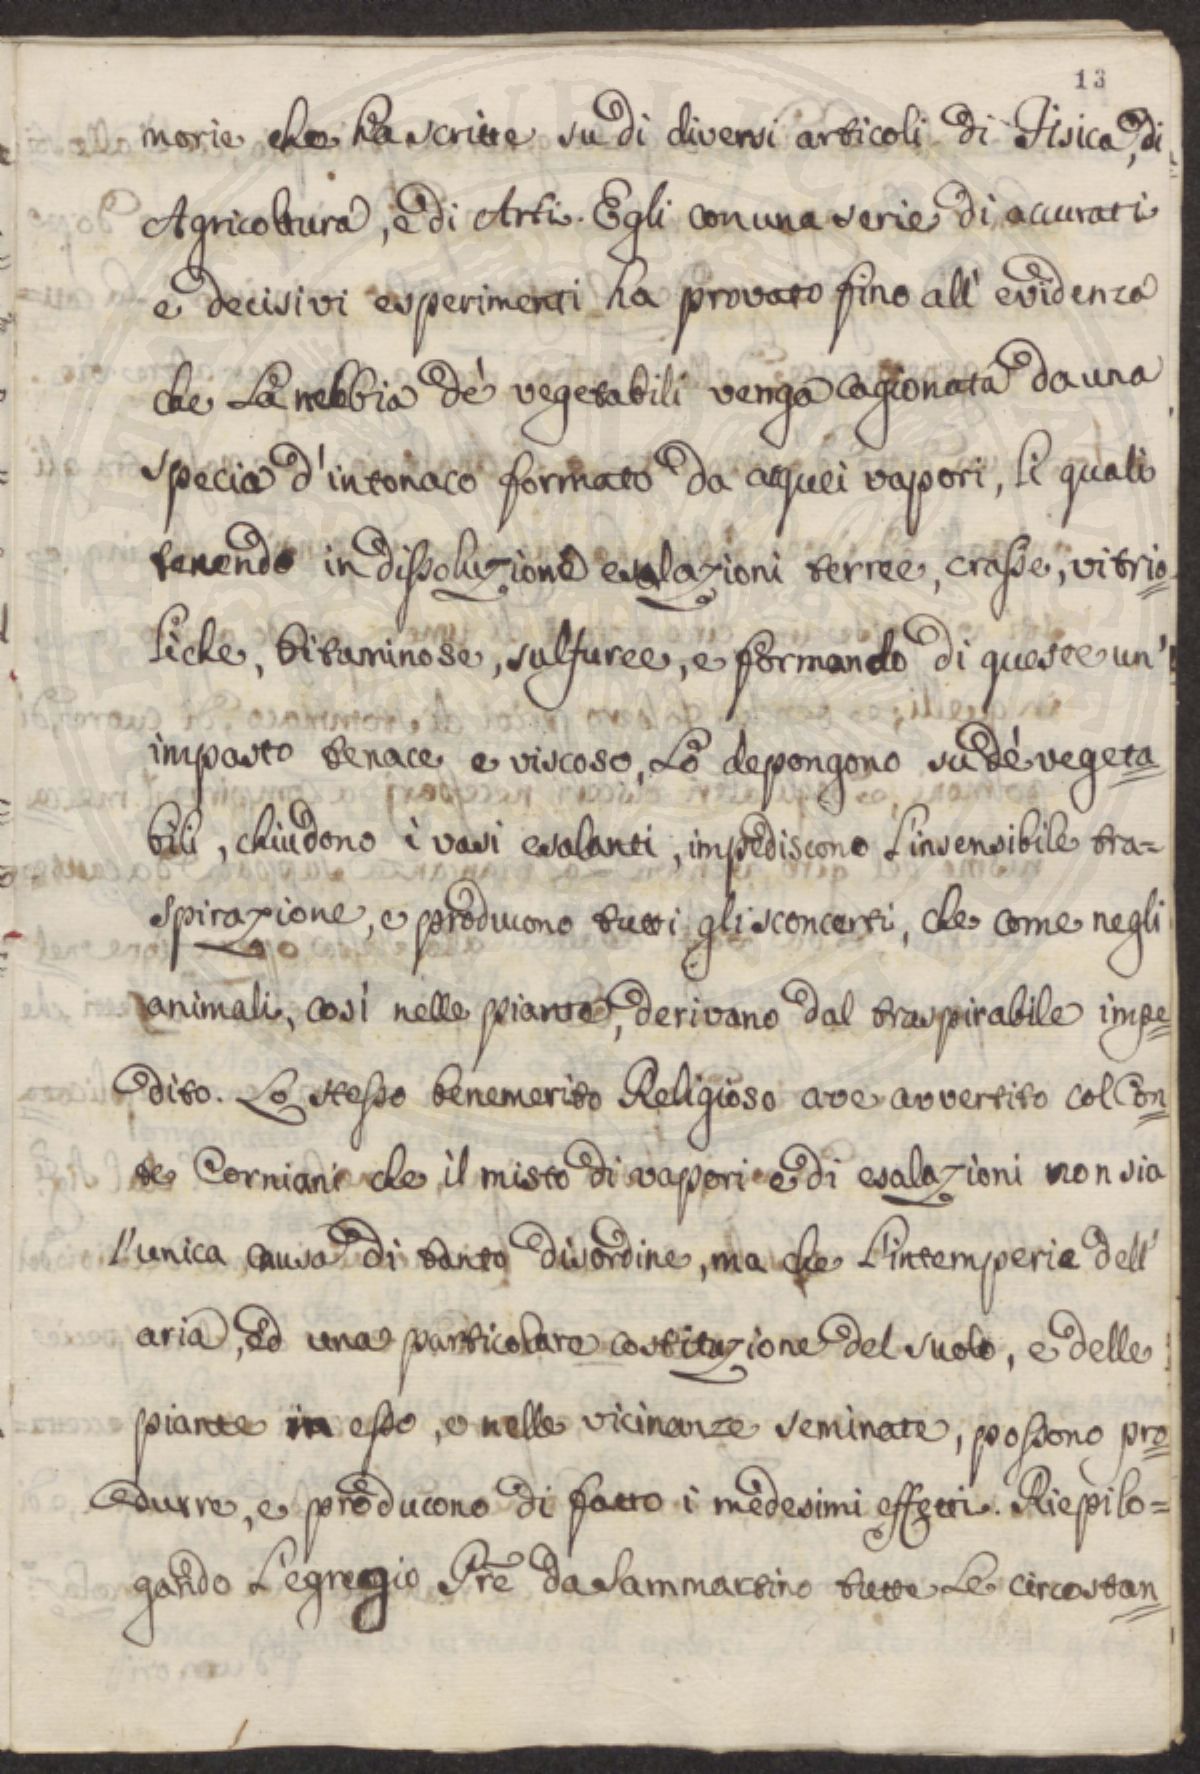 13
morie che ha scritte su di diversi articoli di Fisica, di
Agricoltura, e di Arti. Egli con una serie di accurati
e decisivi esperimenti ha provato fino all' evidenza
che La nebbia dè vegetabili venga cagionata da una
specia d'intonaco formato da acquei vapori, li quali
tenendo in dissoluzione esalazioni terree, crasse, vitrio
liche, bitaminose, sulfuree, e formando di queste un'
impasto tenace e viscoso, Lo depongono su dè vegeta=
bili, chiudono i vasi esalanti, impediscono L'insensibile tra=
spirazione, e producono tutti gli sconcerti, che come negli
animali, così nelle piante, derivano dal traspirabile impe=
dito. Lo stesso benemerito Religioso ave avvertito col Con=
te Corniani che il misto di vapori e di esalazioni non sia
l'unica causa di tanto disordine, ma che L'intemperie dell'
aria, ed una particolare costituzione del suolo, e delle
piante in esso, e nelle vicinanze seminate, possono pro=
durre, e producono di fatto i medesimi effetti. Riepilo=
gando L'egregio Pre da Sammartino tutte Le circostan=